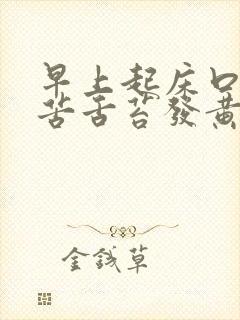 早上起床口
苦舌苔發黃
金錢草